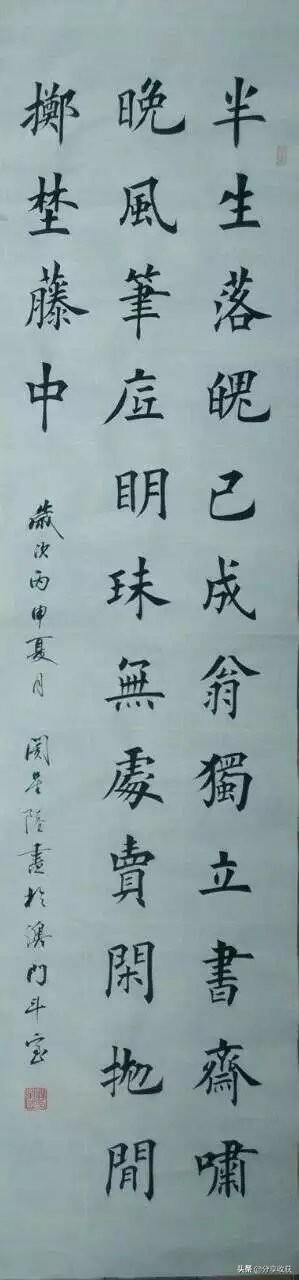 半生落魄已成翁獨立書齋嘯
晚風筆底眀珠無處賣閑抛閒
擲埜藤中
歲次丙申夏月 書於澳門斗室
头条 @分享收获